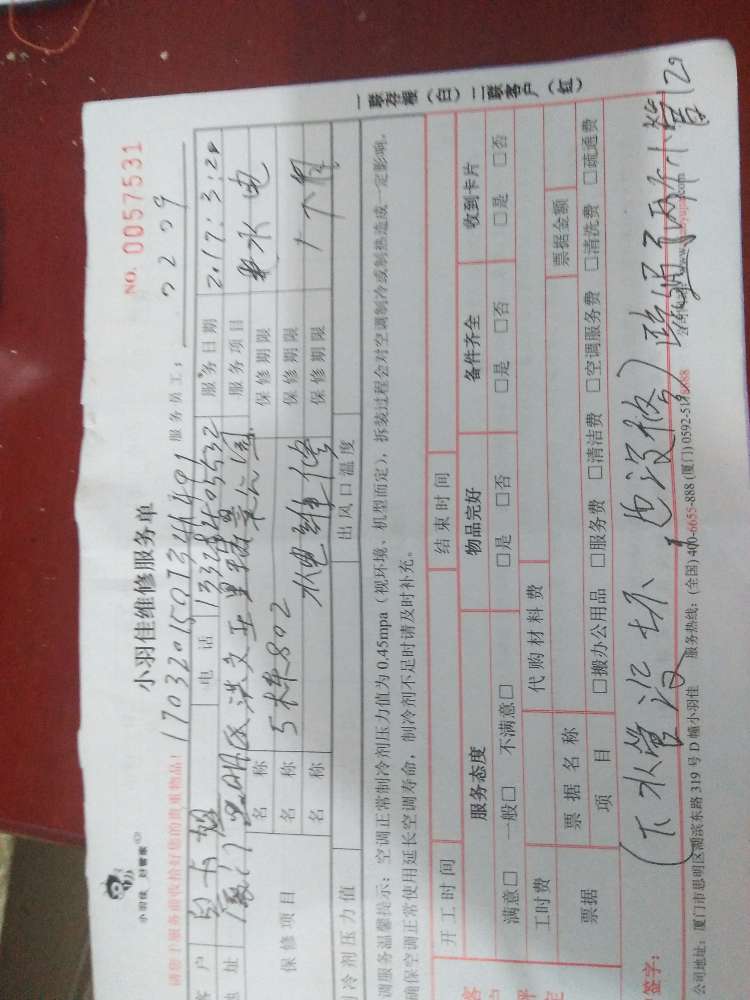 小羽佳 好管家
小羽佳维修服务单
NO. 0057531
请您了服务前收拾好您的贵重物品!
服务员工: 0209
客户
电话
服务日期 2017:3:20
地址 厦门
服务项目 水电
保修项目
名称 5栋802
保修期限
名称 水电维修
保修期限 1个月
名称
保修期限
冷剂压力值
出风口温度
调服务温馨提示:空调正常制冷剂压力值为0.45mpa(视环境、机型而定),拆装过程会对空调制冷或制热造成一定影响,
确保空调正常使用延长空调寿命,制冷剂不足时请及时补充。
开工时间
结束时间
服务态度
物品完好
备件齐全
收到卡片
满意□ 一般□ 不满意□
□是 □否
□是 □否
□是 □否
工时费
代购材料费
票据
票据名称
票据金额
项目
□搬办公用品 □服务费 □清洁费 □空调服务费 □清洗费 □疏通费
签字:
(下水管没坏,也没修)疏通了两个小管 120
公司地址:厦门市思明区湖滨东路319号D幢小羽佳 服务热线:(全国)400-6655-888 (厦门)0592-
一联存根(白)二联客户(红)